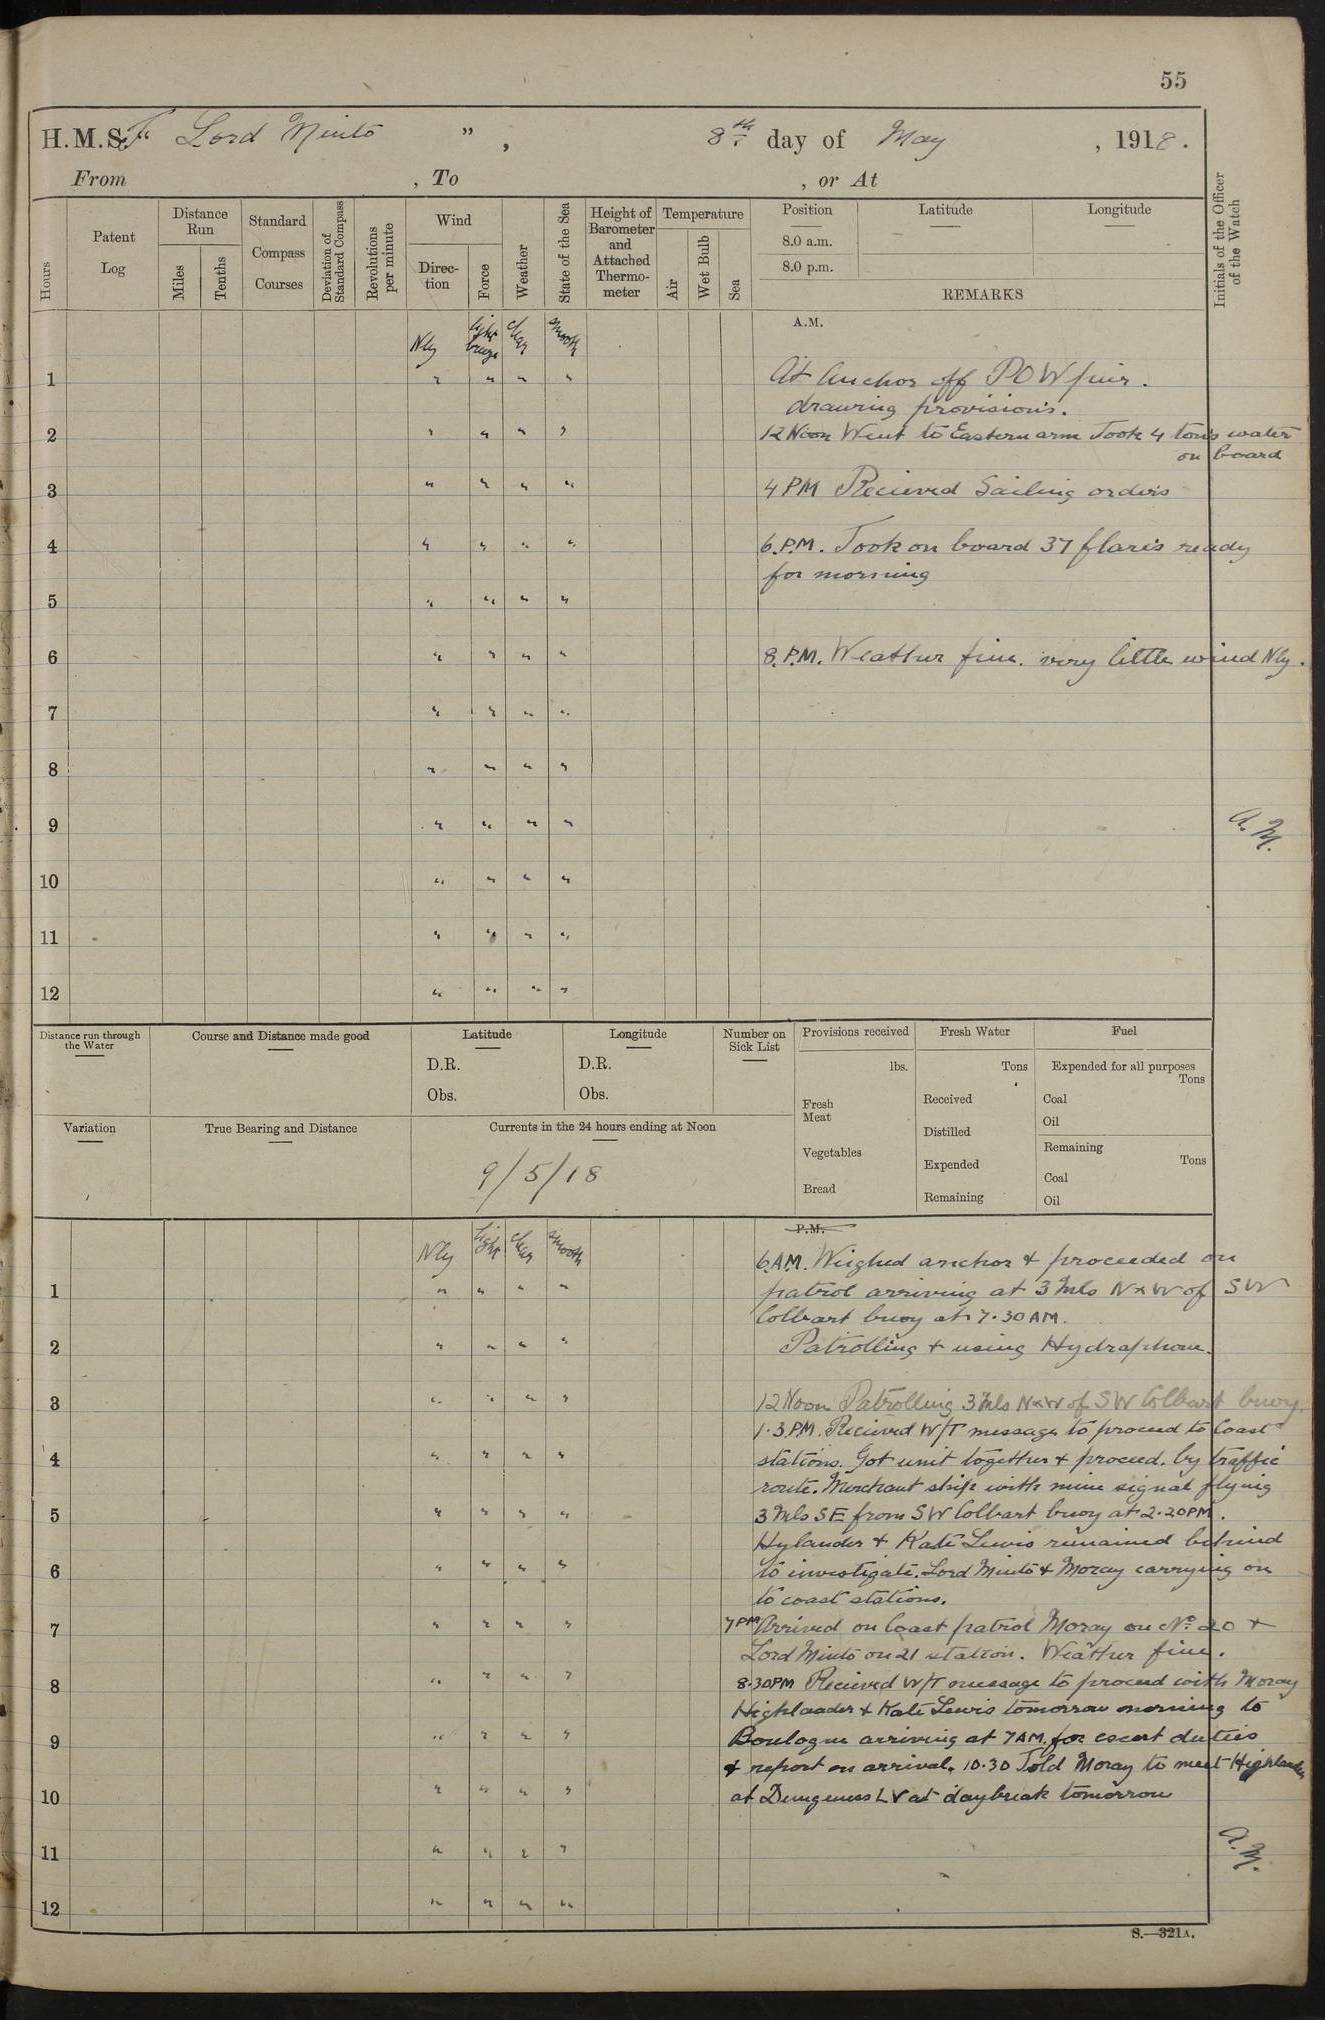 55
H.M.S.T. Lord Minto ", 8th day of May, 1918.
From , To , or At
Hours
Patent Log
Distance Run
Miles
Tenths
Standard Compass Courses
Deviation of Standard Compass
Revolutions per minute
Wind
Direction
Force
Weather
State of the Sea
Height of Barometer and Attached Thermometer
Temperature
Air
Wet Bulb
Sea
Position
8.0 a.m.
8.0 p.m.
Latitude
Longitude
REMARKS
Initials of the Officer of the Watch
A.M.
Nly light breeze clear smooth
1 " " " " At Anchor off POW pier.
drawing provisions.
2 " " " " 12 Noon Went to Eastern arm Took 4 tons water
on board
3 " " " " 4 PM Recieved Sailing orders
4 " " " " 6.P.M. Took on board 37 flares ready
for morning
5 " " " "
6 " " " " 8.P.M. Weather fine. very little wind Nly.
7 " " " "
8 " " " "
9 " " " " A.M.
10 " " " "
11 " " " "
12 " " " "
Distance run through the Water
Course and Distance made good
Latitude
D.R.
Obs.
Longitude
D.R.
Obs.
Number on Sick List
Provisions received
lbs.
Fresh Meat
Vegetables
Bread
Fresh Water
Tons
Received
Distilled
Expended
Remaining
Fuel
Expended for all purposes
Tons
Coal
Oil
Remaining
Tons
Coal
Oil
Variation
True Bearing and Distance
Currents in the 24 hours ending at Noon
9/5/18
P.M.
Nly light clear smooth 6.AM. Weighed anchor & proceeded on
1 " " " " patrol arriving at 3 Mls NxW of SW
Colbart buoy at 7.30 AM.
2 " " " " Patrolling & using Hydraphone.
3 " " " " 12 Noon Patrolling 3 Mls NxW of SW Colbart buoy.
1.3.P.M. Recieved W/T message to proceed to Coast
4 " " " " stations. Got unit together & proceed. by traffic
route. Merchant ship with mine signal flying
5 " " " " 3 Mls SE from SW Colbart buoy at 2.20PM.
Hylander & Kate Lewis remained behind
6 " " " " to investigate. Lord Minto & Moray carrying on
to coast stations.
7 " " " " 7PM Arrived on Coast patrol Moray on No 20 &
Lord Minto on 21 station. Weather fine.
8 " " " " 8.30PM Recieved W/T message to proceed with Moray
Highlander & Kate Lewis tomorrow morning to
9 " " " " Boulogne arriving at 7AM. for escort duties
& report on arrival. 10.30 Told Moray to meet Highlander
10 " " " " at Dungeness LV at daybreak tomorrow
11 " " " " A.M.
12 " " " "
S.—321A.